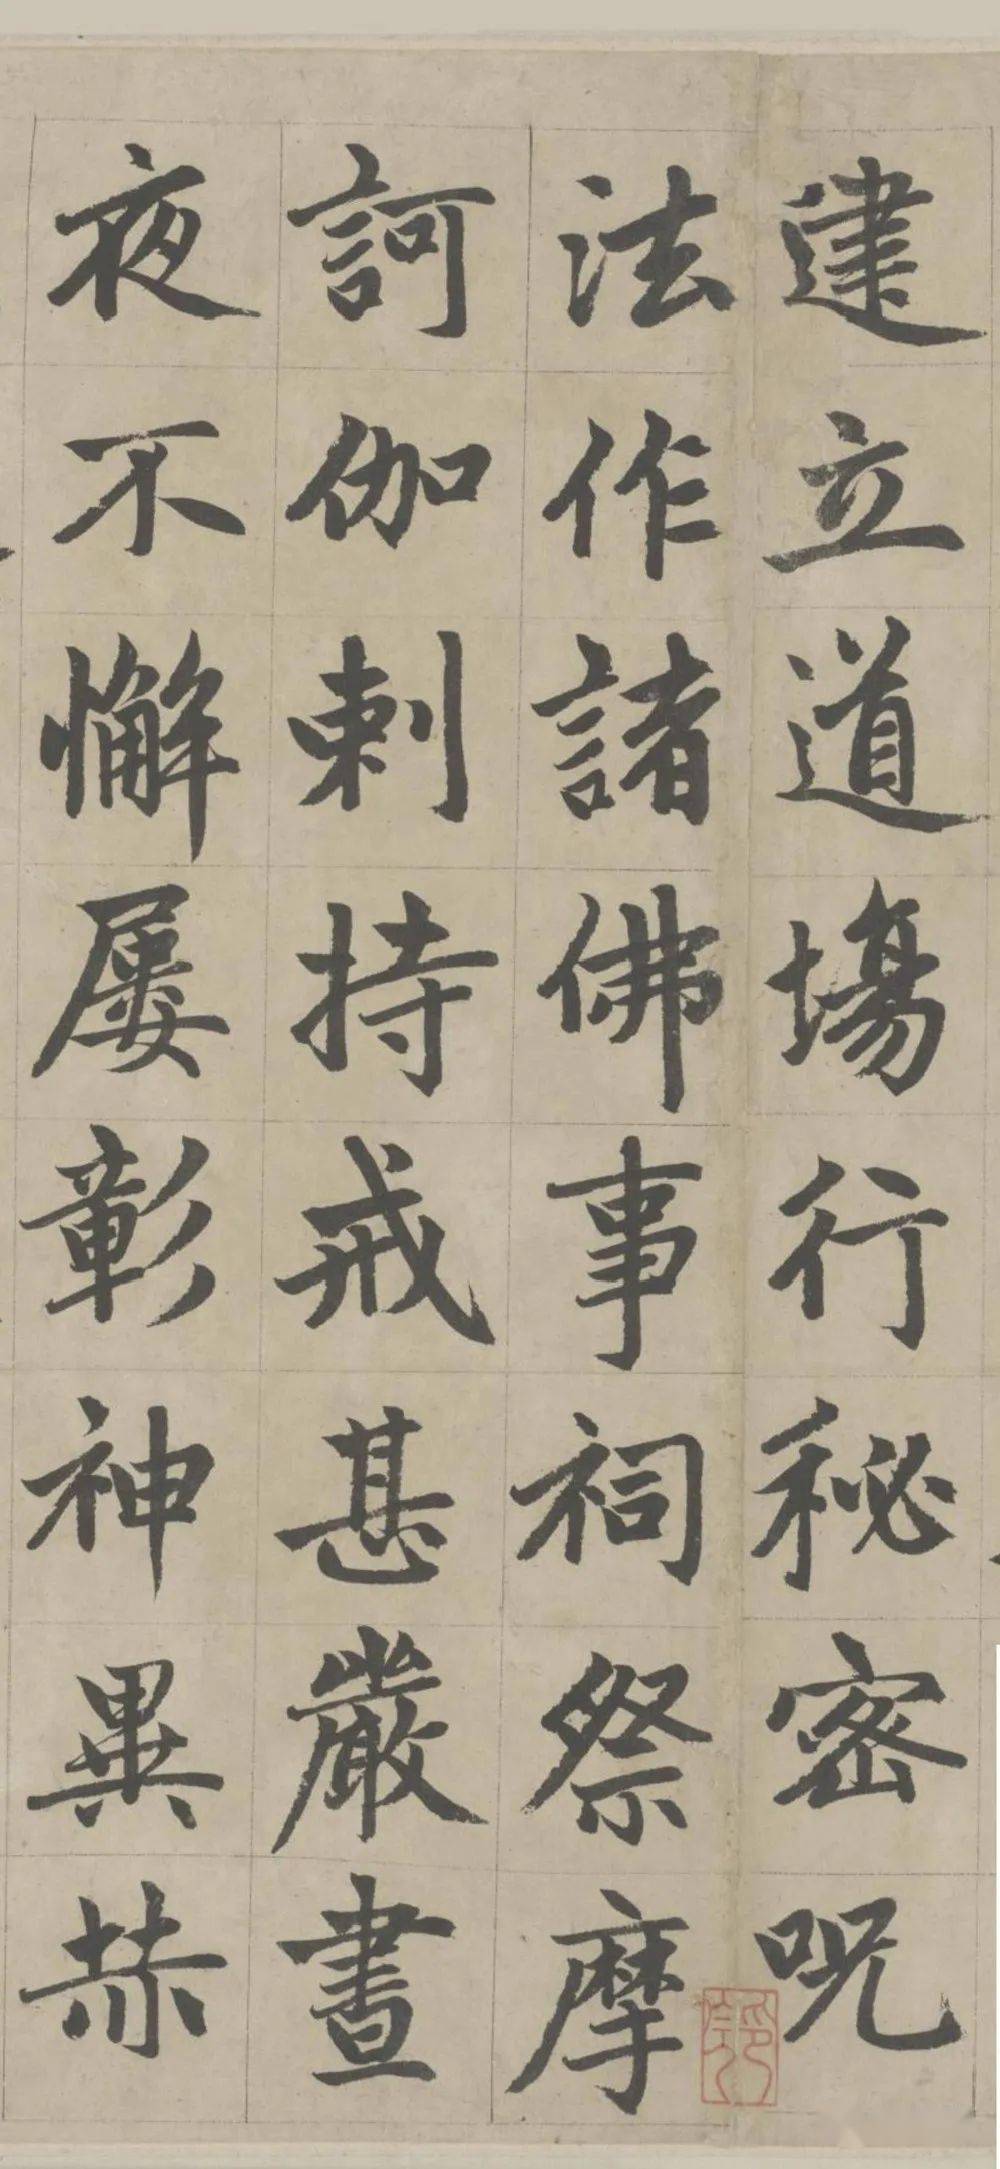 建立道場行秘密呪
法作諸佛事祠祭摩
訶伽剌持戒甚嚴晝
夜不懈屢彰神異赫